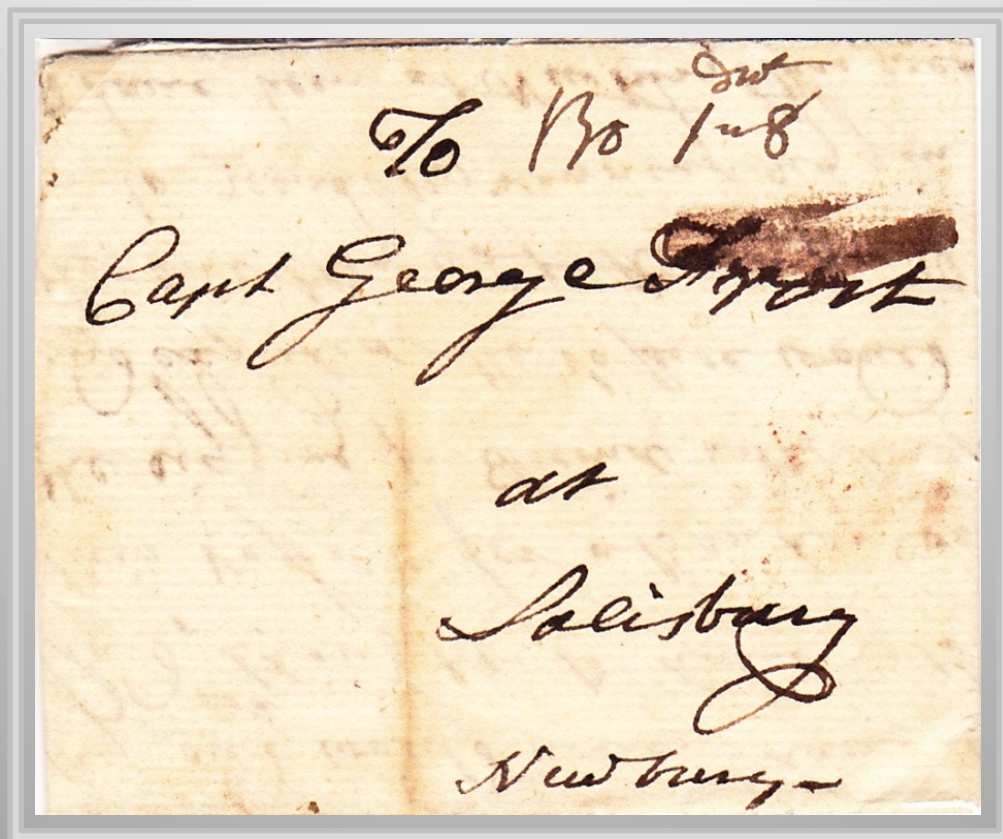 dwt
To Bo 1 " 8
Capt George Frost
at
Salisbury
Newbury